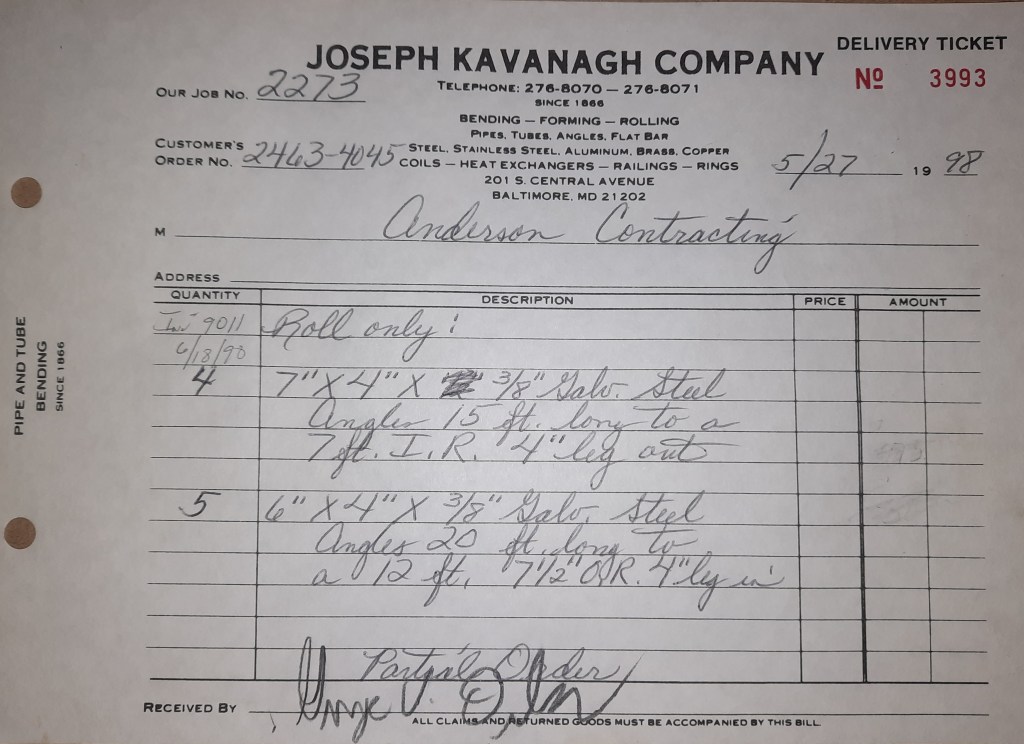 JOSEPH KAVANAGH COMPANY
DELIVERY TICKET
No 3993
OUR JOB NO. 2273
TELEPHONE: 276-8070 — 276-8071
SINCE 1866
BENDING — FORMING — ROLLING
PIPES, TUBES, ANGLES, FLAT BAR
CUSTOMER'S
ORDER NO. 2463-4045
STEEL, STAINLESS STEEL, ALUMINUM, BRASS, COPPER
COILS — HEAT EXCHANGERS — RAILINGS — RINGS
5/27 19 98
201 S. CENTRAL AVENUE
BALTIMORE, MD 21202
M Anderson Contracting
ADDRESS
QUANTITY DESCRIPTION PRICE AMOUNT
Inv 9011 Roll only:
6/18/98
4 7" X 4" X 3/8" Galv. Steel
Angles 15 ft. long to a
7 ft. I.R. 4" leg out
5 6" X 4" X 3/8" Galv. Steel
Angles 20 ft. long to
a 12 ft. 7 1/2" O.R. 4" leg in
Partial Order
RECEIVED BY
ALL CLAIMS AND RETURNED GOODS MUST BE ACCOMPANIED BY THIS BILL
PIPE AND TUBE
BENDING
SINCE 1866